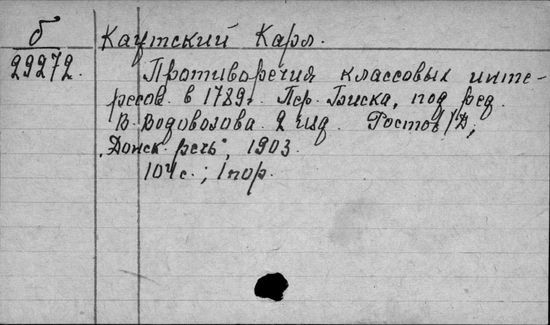 б
29272.
Каутский Карл.
Противоречия классовых инте-
ресов в 1789г. Пер. Биска, под ред.
В. Водовозова. 2 изд. Ростов/Д,
"Донск. речь", 1903.
104 с.; 1 пор.